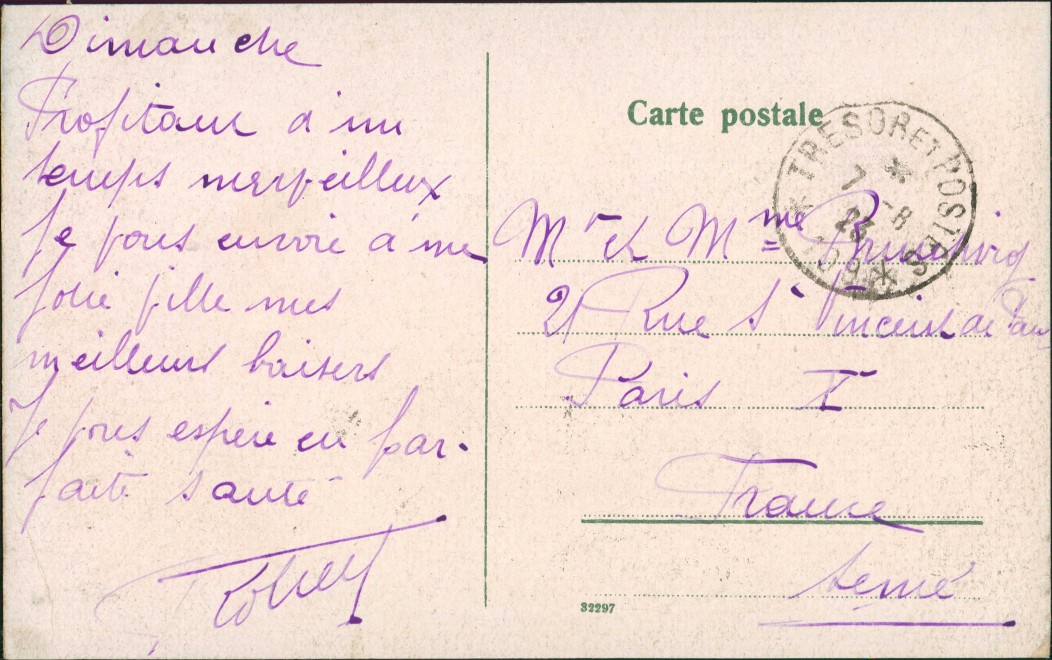 Dimanche
Profitant d'un
temps merveilleux
Je vous envoie à une
jolie fille mes
meilleurs baisers
Je vous espère en par-
faite santé
Robert
Carte postale
TRESOR ET POSTES
7 -8
23
Mr et Mme
21 Rue St Vincent de Paul
Paris X
France
Seine
32297